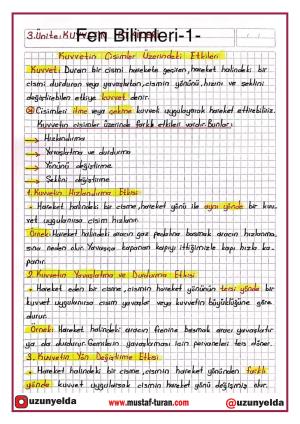 3.Ünite: KU
Fen Bilimleri-1-
Kuvvetin Cisimler Üzerindeki Etkileri
Kuvvet: Duran bir cismi harekete geçiren, hareket halindeki bir
cismi durduran veya yavaşlatan, cismin yönünü, hızını ve şeklini
değiştirebilen etkiye kuvvet denir.
Cisimleri itme veya çekme kuvveti uygulayarak hareket ettirebiliriz.
Kuvvetin cisimler üzerinde farklı etkileri vardır. Bunlar;
→ Hızlandırma
→ Yavaşlatma ve durdurma
→ Yönünü değiştirme
→ Şeklini değiştirme
1. Kuvvetin Hızlandırma Etkisi
Hareket halindeki bir cisme, hareket yönü ile aynı yönde bir kuv-
vet uygulanırsa cisim hızlanır.
Örnek: Hareket halindeki aracın gaz pedalına basmak aracın hızlanma-
sına neden olur. Yavaşça kapanan kapıyı ittiğimizle kapı hızla ka-
panır.
2. Kuvvetin Yavaşlatma ve Durdurma Etkisi
Hareket eden bir cisme, cismin hareket yönünün tersi yönde bir
kuvvet uygulanırsa cisim yavaşlar veya kuvvetin büyüklüğüne göre
durur.
Örneği: Hareket halindeki aracın frenine basmak aracı yavaşlatır
ya da durdurur. Gemilerin yavaşlaması için pervaneleri ters döner.
3. Kuvvetin Yön Değiştirme Etkisi
Hareket halindeki bir cisme, cismin hareket yönünden farklı
yönde kuvvet uygulanırsa cismin hareket yönü değişmiş olur.
uzunyelda
www.mustaf-turan.com
@uzunyelda